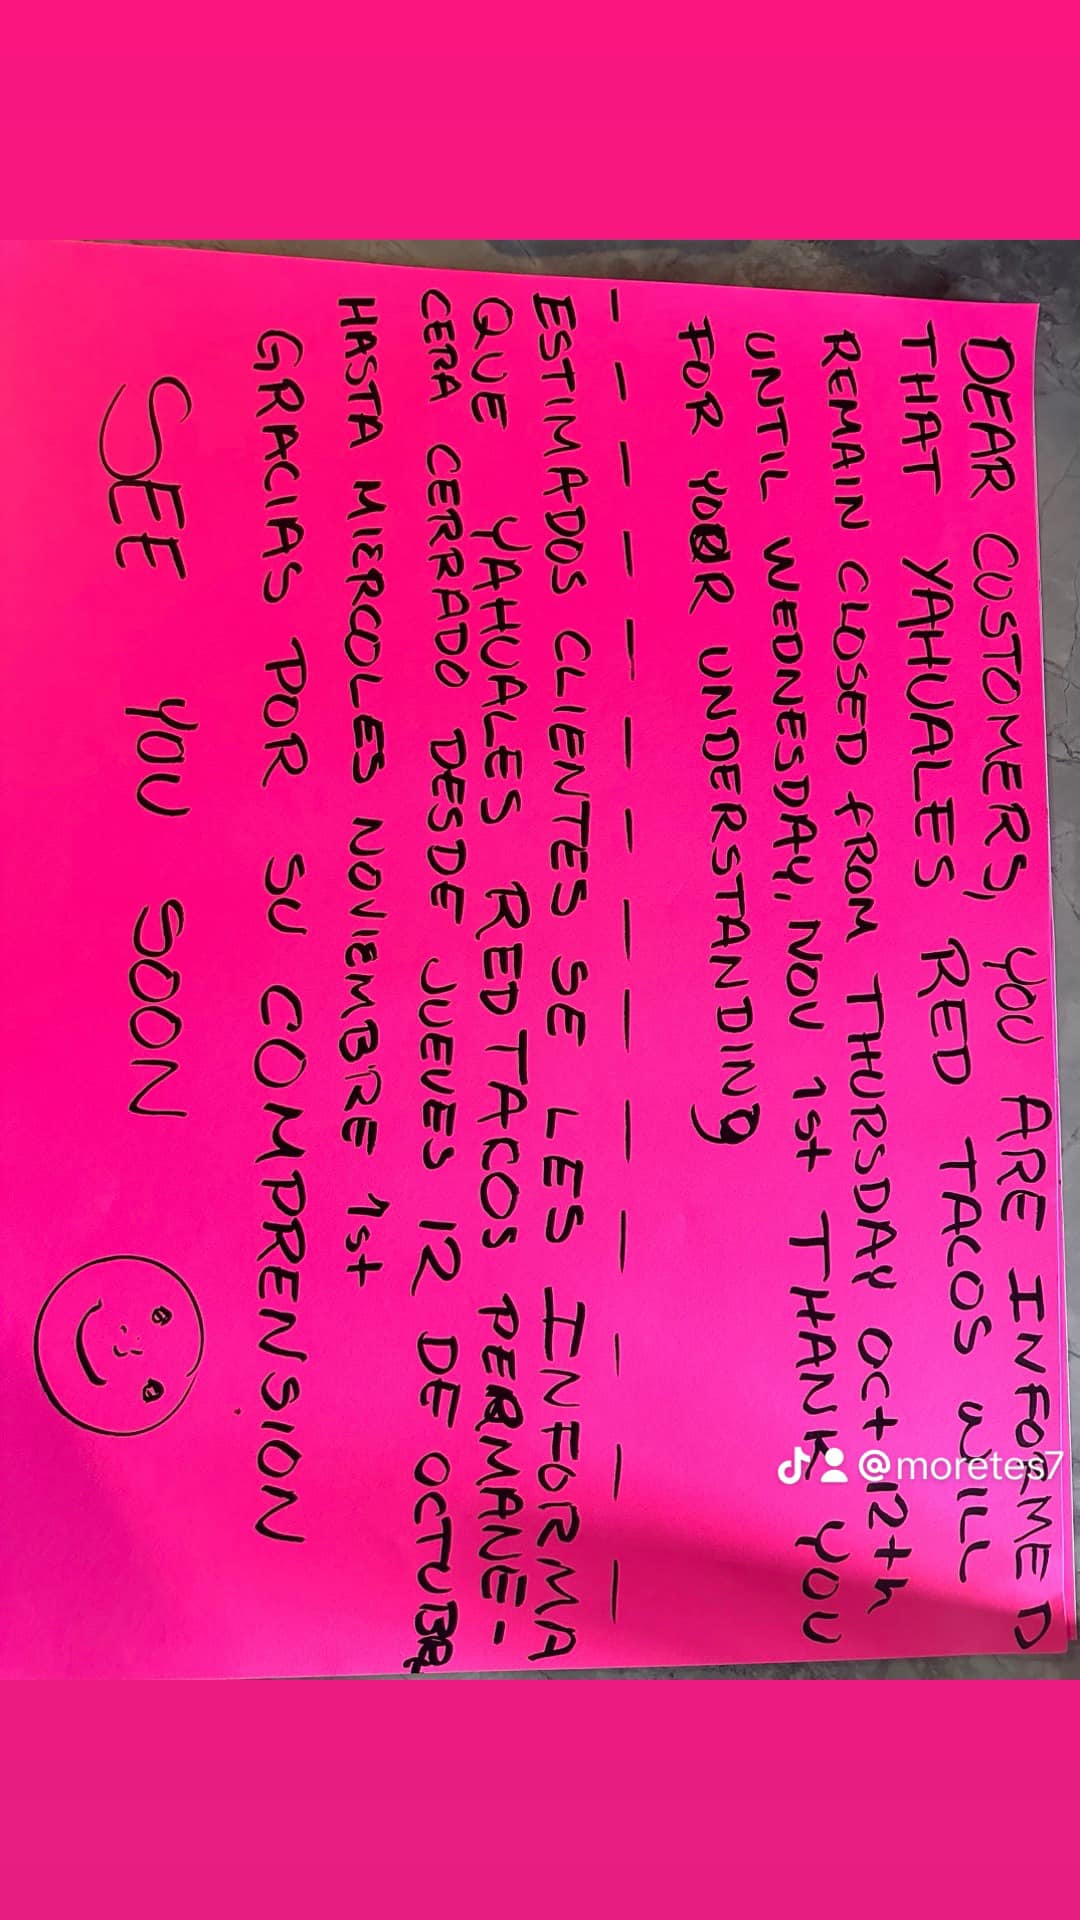 DEAR CUSTOMERS, YOU ARE INFORMED
THAT YAHUALES RED TACOS WILL
REMAIN CLOSED FROM THURSDAY OCT 12th
UNTIL WEDNESDAY, NOV 1st THANK YOU
FOR YOUR UNDERSTANDING
ESTIMADOS CLIENTES SE LES INFORMA
QUE YAHUALES RED TACOS PERMANE-
CERA CERRADO DESDE JUEVES 12 DE OCTUBR
HASTA MIERCOLES NOVIEMBRE 1st
GRACIAS POR SU COMPRENSION
SEE YOU SOON
@moretes7